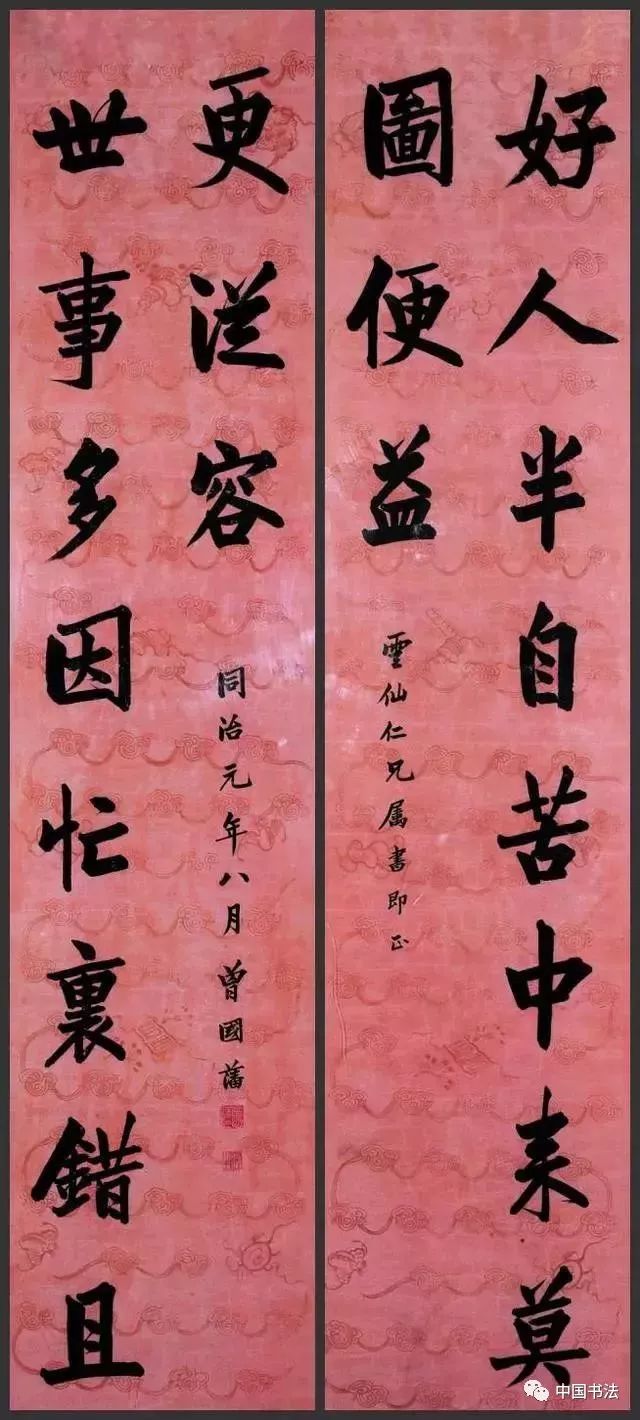 好人半自苦中来莫
圖便益
雲仙仁兄属書即正
世事多因忙裏錯且
更從容
同治元年八月曾國藩
中国书法